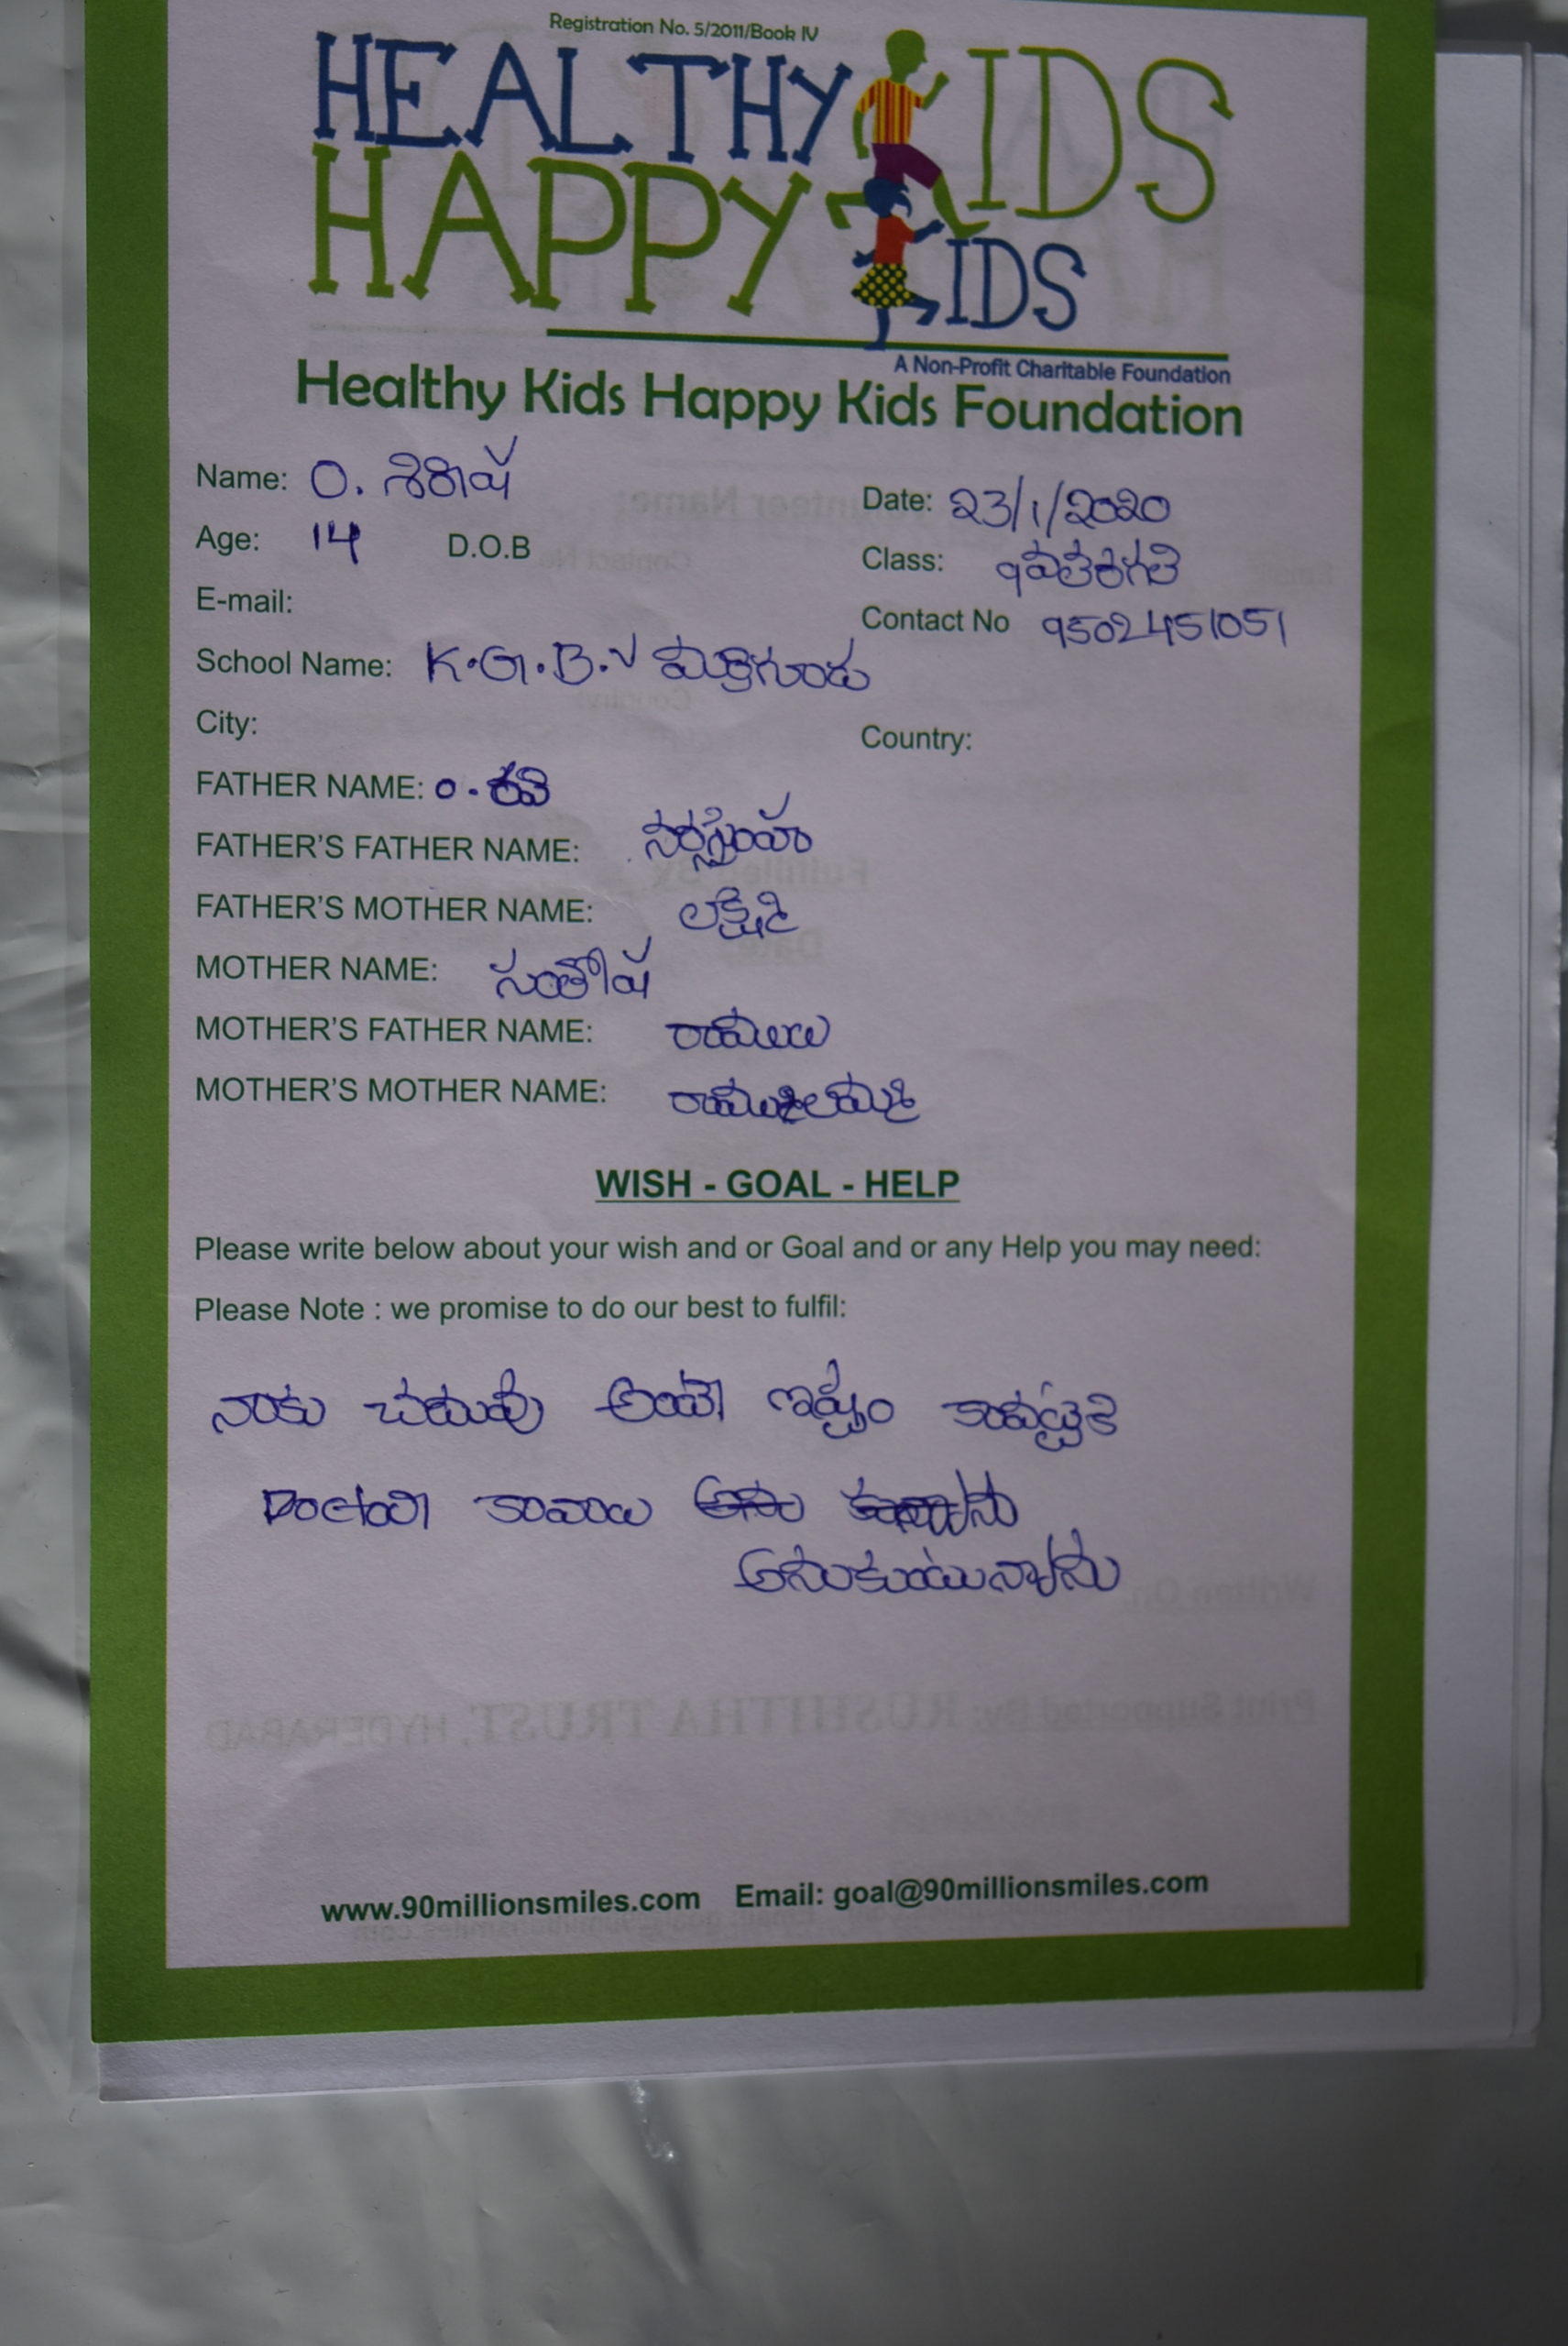 Registration No. 5/2011/Book IV
HEALTHY KIDS
HAPPY KIDS
A Non-Profit Charitable Foundation
Healthy Kids Happy Kids Foundation
Name: O. శిరీష
Date: 23/1/2020
Age: 14 D.O.B
Class: 9వ తరగతి
E-mail:
Contact No 9502451051
School Name: K.G.B.V మర్రిగూడు
City:
Country:
FATHER NAME: O. రవి
FATHER'S FATHER NAME: నర్సింహ
FATHER'S MOTHER NAME: లక్ష్మి
MOTHER NAME: సంతోష
MOTHER'S FATHER NAME: రాములు
MOTHER'S MOTHER NAME:
WISH - GOAL - HELP
Please write below about your wish and or Goal and or any Help you may need:
Please Note : we promise to do our best to fulfil:
నాకు చదువు అంటే ఇష్టం
కావాలి
అనుకుంటున్నాను
www.90millionsmiles.com Email: goal@90millionsmiles.com